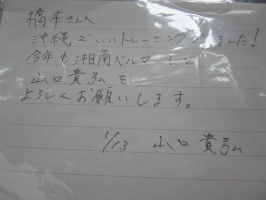 橋本さんへ
沖縄でいいトレーニングできました!
今年も湘南ベルマーレと
山口貴弘を
よろしくお願いします。
1/13 山口貴弘